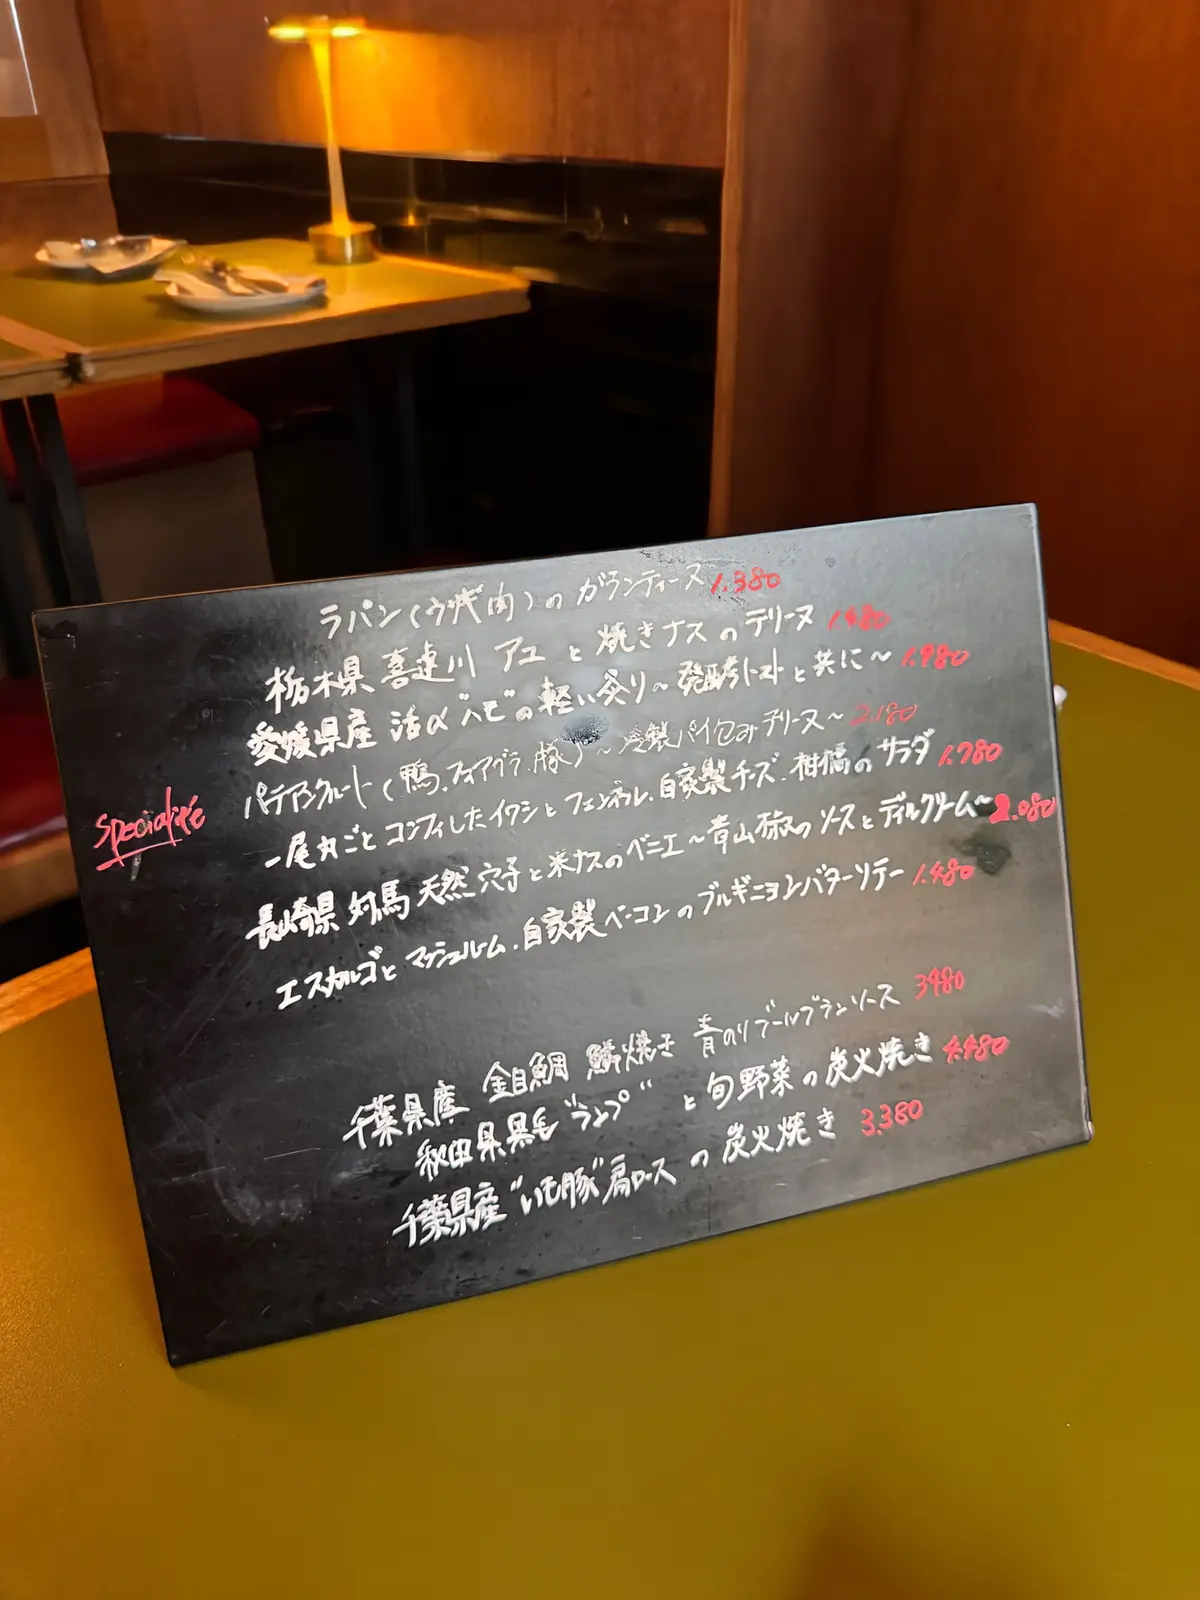 ラパン(ウサギ肉)のガランティーヌ 1.380
栃木県 喜連川 アユと焼きナスのテリーヌ 1.480
愛媛県産 活〆"ハモ"の軽い炙り～発酵トマトと共に～ 1.980
Specialité パテアンクルート(鴨、フォアグラ、豚)～冷製パイ包みテリーヌ～ 2.180
一尾丸ごとコンフィしたイワシとフェンネル、自家製チーズ、柑橘のサラダ 1.780
長崎県 対馬 天然穴子と米ナスのベニエ～青山椒のソースとディルクリーム～ 2.080
エスカルゴとマッシュルーム、自家製ベーコンのブルギニヨンバターソテー 1.480
千葉県産 金目鯛 鱗焼き 青のりブールブランソース 3980
秋田県黒毛"ランプ" と旬野菜の炭火焼き 4.480
千葉県産"いも豚"肩ロースの炭火焼き 3.380